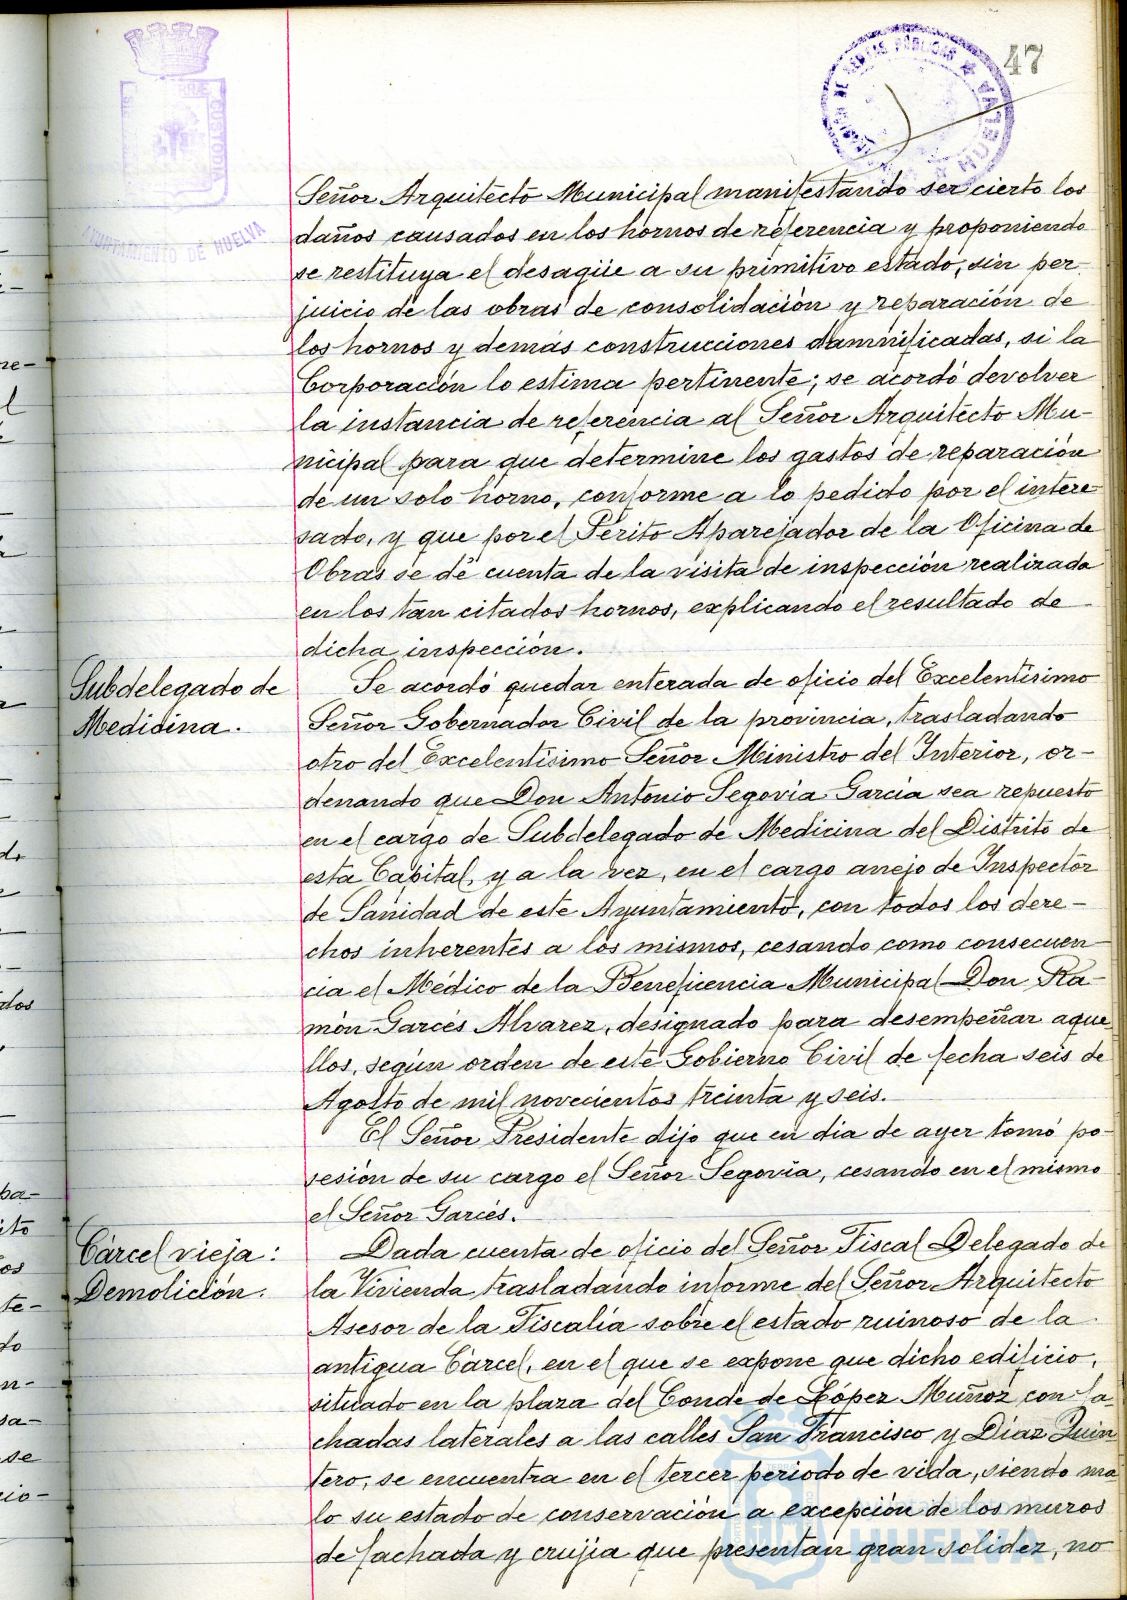 47
AYUNTAMIENTO DE HUELVA
Señor Arquitecto Municipal manifestando ser cierto los
daños causados en los hornos de referencia y proponiendo
se restituya el desagüe a su primitivo estado, sin per-
juicio de las obras de consolidación y reparación de
los hornos y demás construcciones damnificadas, si la
Corporación lo estima pertinente; se acordó devolver
la instancia de referencia al Señor Arquitecto Mu-
nicipal para que determine los gastos de reparación
de un solo horno, conforme a lo pedido por el intere-
sado, y que por el Perito Aparejador de la Oficina de
Obras se dé cuenta de la visita de inspección realizada
en los tan citados hornos, explicando el resultado de
dicha inspección.
Subdelegado de
Medicina.
Se acordó quedar enterada de oficio del Excelentísimo
Señor Gobernador Civil de la provincia, trasladando
otro del Excelentísimo Señor Ministro del Interior, or-
denando que Don Antonio Segovia García sea repuesto
en el cargo de Subdelegado de Medicina del Distrito de
esta Capital, y a la vez, en el cargo anejo de Inspector
de Sanidad de este Ayuntamiento, con todos los dere-
chos inherentes a los mismos, cesando como consecuen-
cia el Médico de la Beneficencia Municipal Don Ra-
món Garcés Alvarez, designado para desempeñar aque
llos, según orden de este Gobierno Civil de fecha seis de
Agosto de mil novecientos treinta y seis.
El Señor Presidente dijo que en dia de ayer tomó po-
sesión de su cargo el Señor Segovia, cesando en el mismo
el Señor Garcés.
Cárcel vieja:
Demolición.
Dada cuenta de oficio del Señor Fiscal Delegado de
la Vivienda trasladando informe del Señor Arquitecto
Asesor de la Fiscalía sobre el estado ruinoso de la
antigua Cárcel, en el que se expone que dicho edificio,
situado en la plaza del Conde de López Muñoz con fa-
chadas laterales a las calles San Francisco y Díaz Quin
tero, se encuentra en el tercer periodo de vida, siendo ma
lo su estado de conservación a excepción de los muros
de fachada y crujía que presentan gran solidez, no
HUELVA